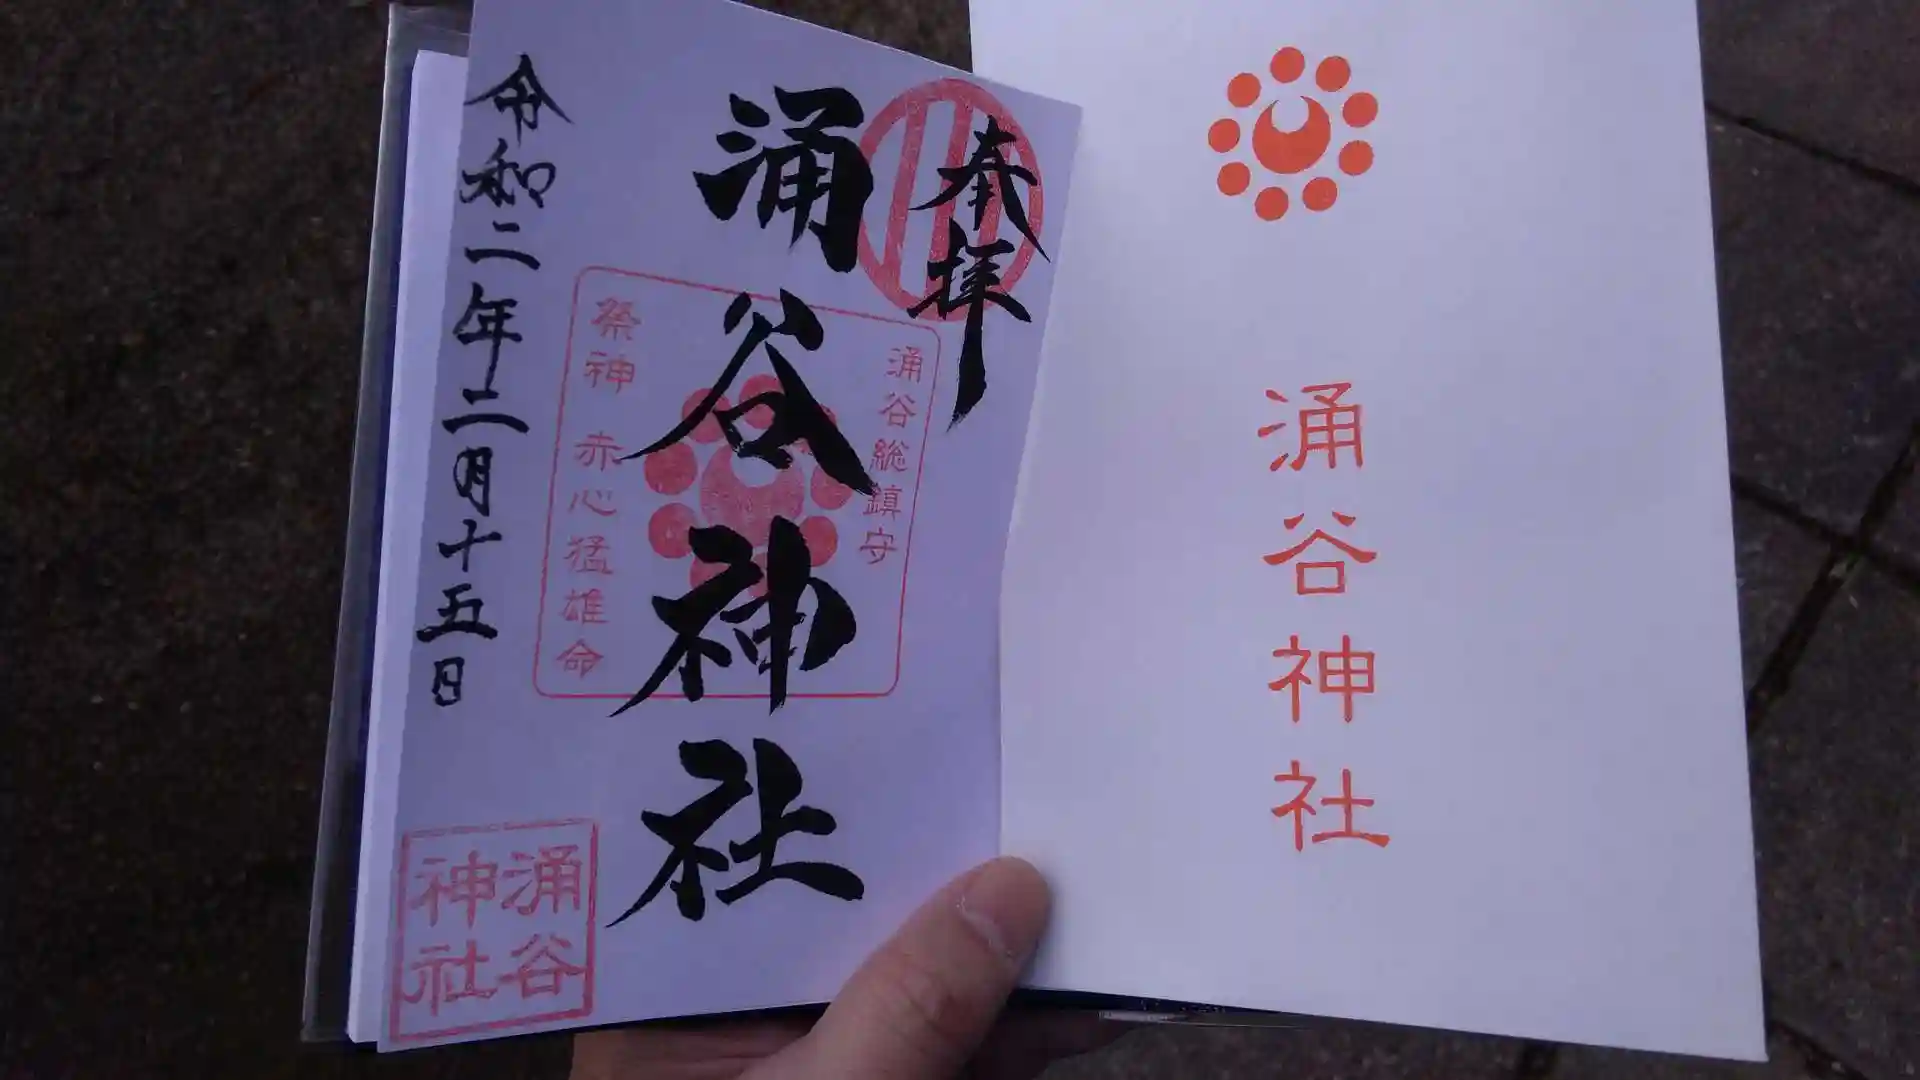 奉拝
涌谷神社
涌谷総鎮守
祭神 赤心猛雄命
令和二年二月十五日
涌谷
神社
涌谷神社